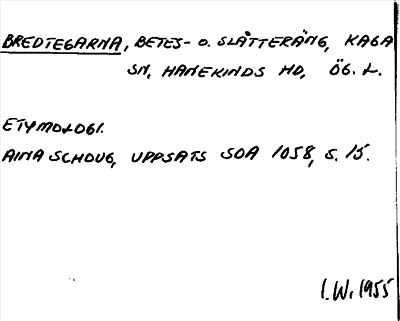 BREDTEGARNA, BETES- O. SLÅTTERÄNG, KAGA
SN, HANEKINDS HD, ÖG. L.
ETYMOLOGI.
AINA SCHOUG, UPPSATS SOA 1058, S. 15.
I.W. 1955